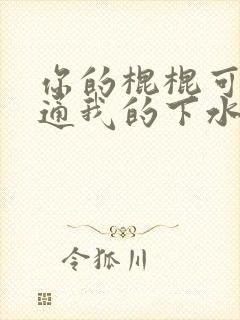 你的棍棍可
通我的下水
令狐川